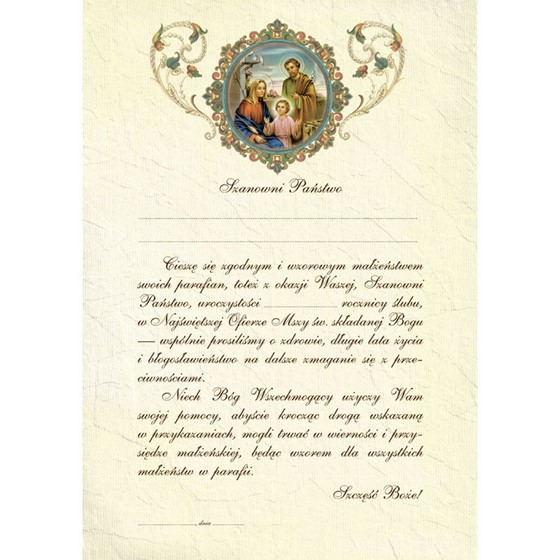 Szanowni Państwo
Cieszę się zgodnym i wzorowym małżeństwem
swoich parafian, toteż z okazji Waszej, Szanowni
Państwo, uroczystości __________ rocznicy ślubu,
w Najświętszej Ofierze Mszy św. składanej Bogu
— wspólnie prosiliśmy o zdrowie, długie lata życia
i błogosławieństwo na dalsze zmaganie się z prze-
ciwnościami.
Niech Bóg Wszechmogący użyczy Wam
swojej pomocy, abyście krocząc drogą wskazaną
w przykazaniach, mogli trwać w wierności i przy-
siędze małżeńskiej, będąc wzorem dla wszystkich
małżeństw w parafii.
Szczęść Boże!
, dnia